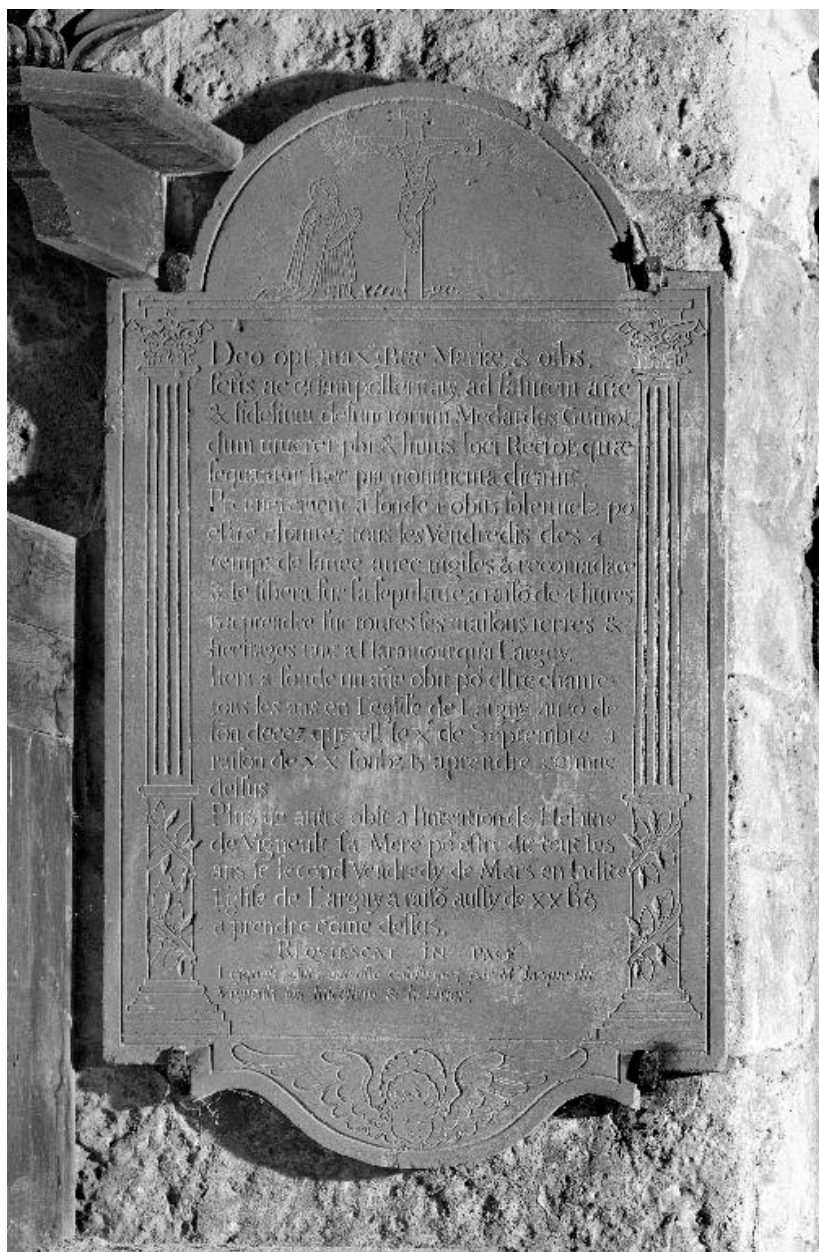 Deo opt, max, Btæ Mariæ, & oibs,
sctis ac etiam ad salutem añæ
& fidelium defunctorum Medardus Guinot,
dum viveret pbr & huius loci Rector, quæ
sequntur hæc pia monumenta dicavit,
Premierement a fonde 4 obitz solennelz po
estre chantez tous les Vendredis des 4
temps de lanee avec vigiles & recomadace
& le libera sur sa sepulture, a raisõ de 4 livres
a prendre sur toutes ses maisons terres &
heritages tant a Haramont qua Largny,
Item a fonde un obit põ estre chante
tous les ans en Leglise de Largny, au jõ de
son decez qui est le X de Septembre a
raison de XX soubz a prendre comme
dessus
Plus un autre obit a lintention de Helaine
de Vigneulx sa Mere põ estre dit tous les
ans le second Vendredy de Mars en ladite
Eglise de Largny a raisõ aussy de XX
a prendre cõme dessus,
REQUIESCAT IN PACE
par Mr Jacque de
& heritier,